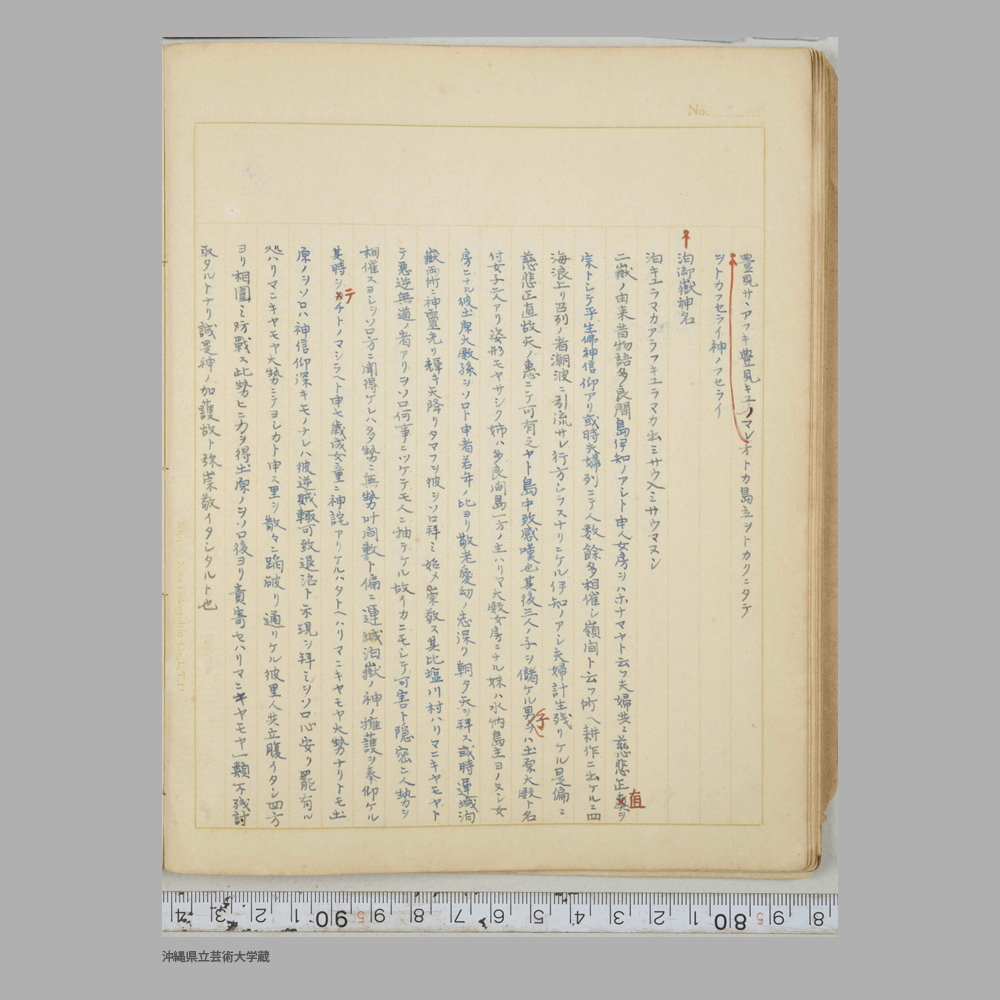 No.
豊見サンアフキ豊見キユノマレオトカ島立ヲトカクニタテ
ヲトカフセライ神ノフセライ
泊御嶽神名
泊キユラマカアラフキユラマカ出ミサウ入ミサウマヌシ
二嶽ノ由来昔物語多良間島伊知ノアシト申人女房シハホナマヤト云フ夫婦共ニ慈悲正直ヲ
宗トシテ平生佛神信仰アリ或時夫婦列ニテ人数餘多相催シ嶺間ト云フ所ヘ耕作ニ出ケルニ四
海浪上リ呂列ノ者潮波ニ引流サレ行方シラスナリニケル伊知ノアシ夫婦計生残リケル是偏ニ
慈悲正直故天ノ恵ニテ可有之ヤト島中致感嘆也其後三人ノ子ヲ儲ケル男子ハ土原大殿ト名
付女子二人アリ姿形モヤサシク姉ハ多良間島一方ノ主ハリマ大殿女房ニナル妹ハ水納島主ヨノヌシ女
房ニナル彼土原大殿孫シソロト申者若年ノ比ヨリ敬老愛幼ノ志深ク朝夕天ヲ拝ス或時運城泊
嶽両所ニ神霊光リ輝キ天降リタマフヲ彼シソロ拝ミ始メ崇敬ス其比塩川村ハリマニキヤモヤト
テ悪逆無道ノ者アリシソロ何事ニツケテモ人ニ抽テケル故イカニモシテ可害ト隠密ニ人勢ヲ
相催スヨシシソロ方ニ聞得ケレハ多勢ニ無勢叶間敷ト偏ニ運城泊嶽ノ神ノ擁護ヲ奉仰ケル
其時シテチトノマシラヘト申七歳成女童ニ神詫アリケルハタトヘハリマニキヤモヤ大勢ナリトモ土
原ノシソロハ神信仰深キモノナレハ彼逆賊輙可致退治ト示現シ拝ミシソロ心安ク罷有ル
処ハリマニキヤモヤ大勢ニテヨレカト申ス里ヲ散々ニ蹈破リ通リケル彼里人共立腹イタシ四方
ヨリ相圍ミ防戦ス此勢ヒニ力ヲ得土原ノシソロ後ヨリ責寄セハリマニキヤモヤ一類不残討
取タルトナリ誠是神ノ加護故ト弥崇敬イタシタルト也
8 5 80 2 3 4 5 6 7 8 5 90 1 2 3 4
沖縄県立芸術大学蔵